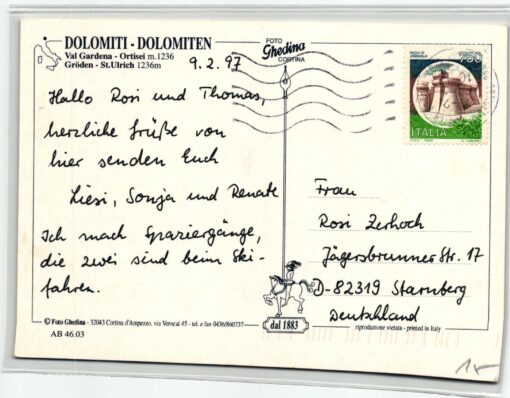 DOLOMITI - DOLOMITEN
Val Gardena - Ortisei m.1236
Gröden - St.Ulrich 1236m
9.2.97
Hallo Rosi und Thomas,
herzliche Grüße von
hier senden Euch
Liesi, Sonja und Renate
Ich mach Spaziergänge,
die zwei sind beim Ski-
fahren.
© Foto Ghedina - 32043 Cortina d'Ampezzo, via Verocai 45 - tel. e fax 0436/860737
AB 46.03
FOTO
Ghedina
CORTINA
dal 1883
750
ITALIA
Frau
Rosi Zerhoch
Jägersbrunner Str. 17
D-82319 Starnberg
Deutschland
riproduzione vietata - printed in Italy